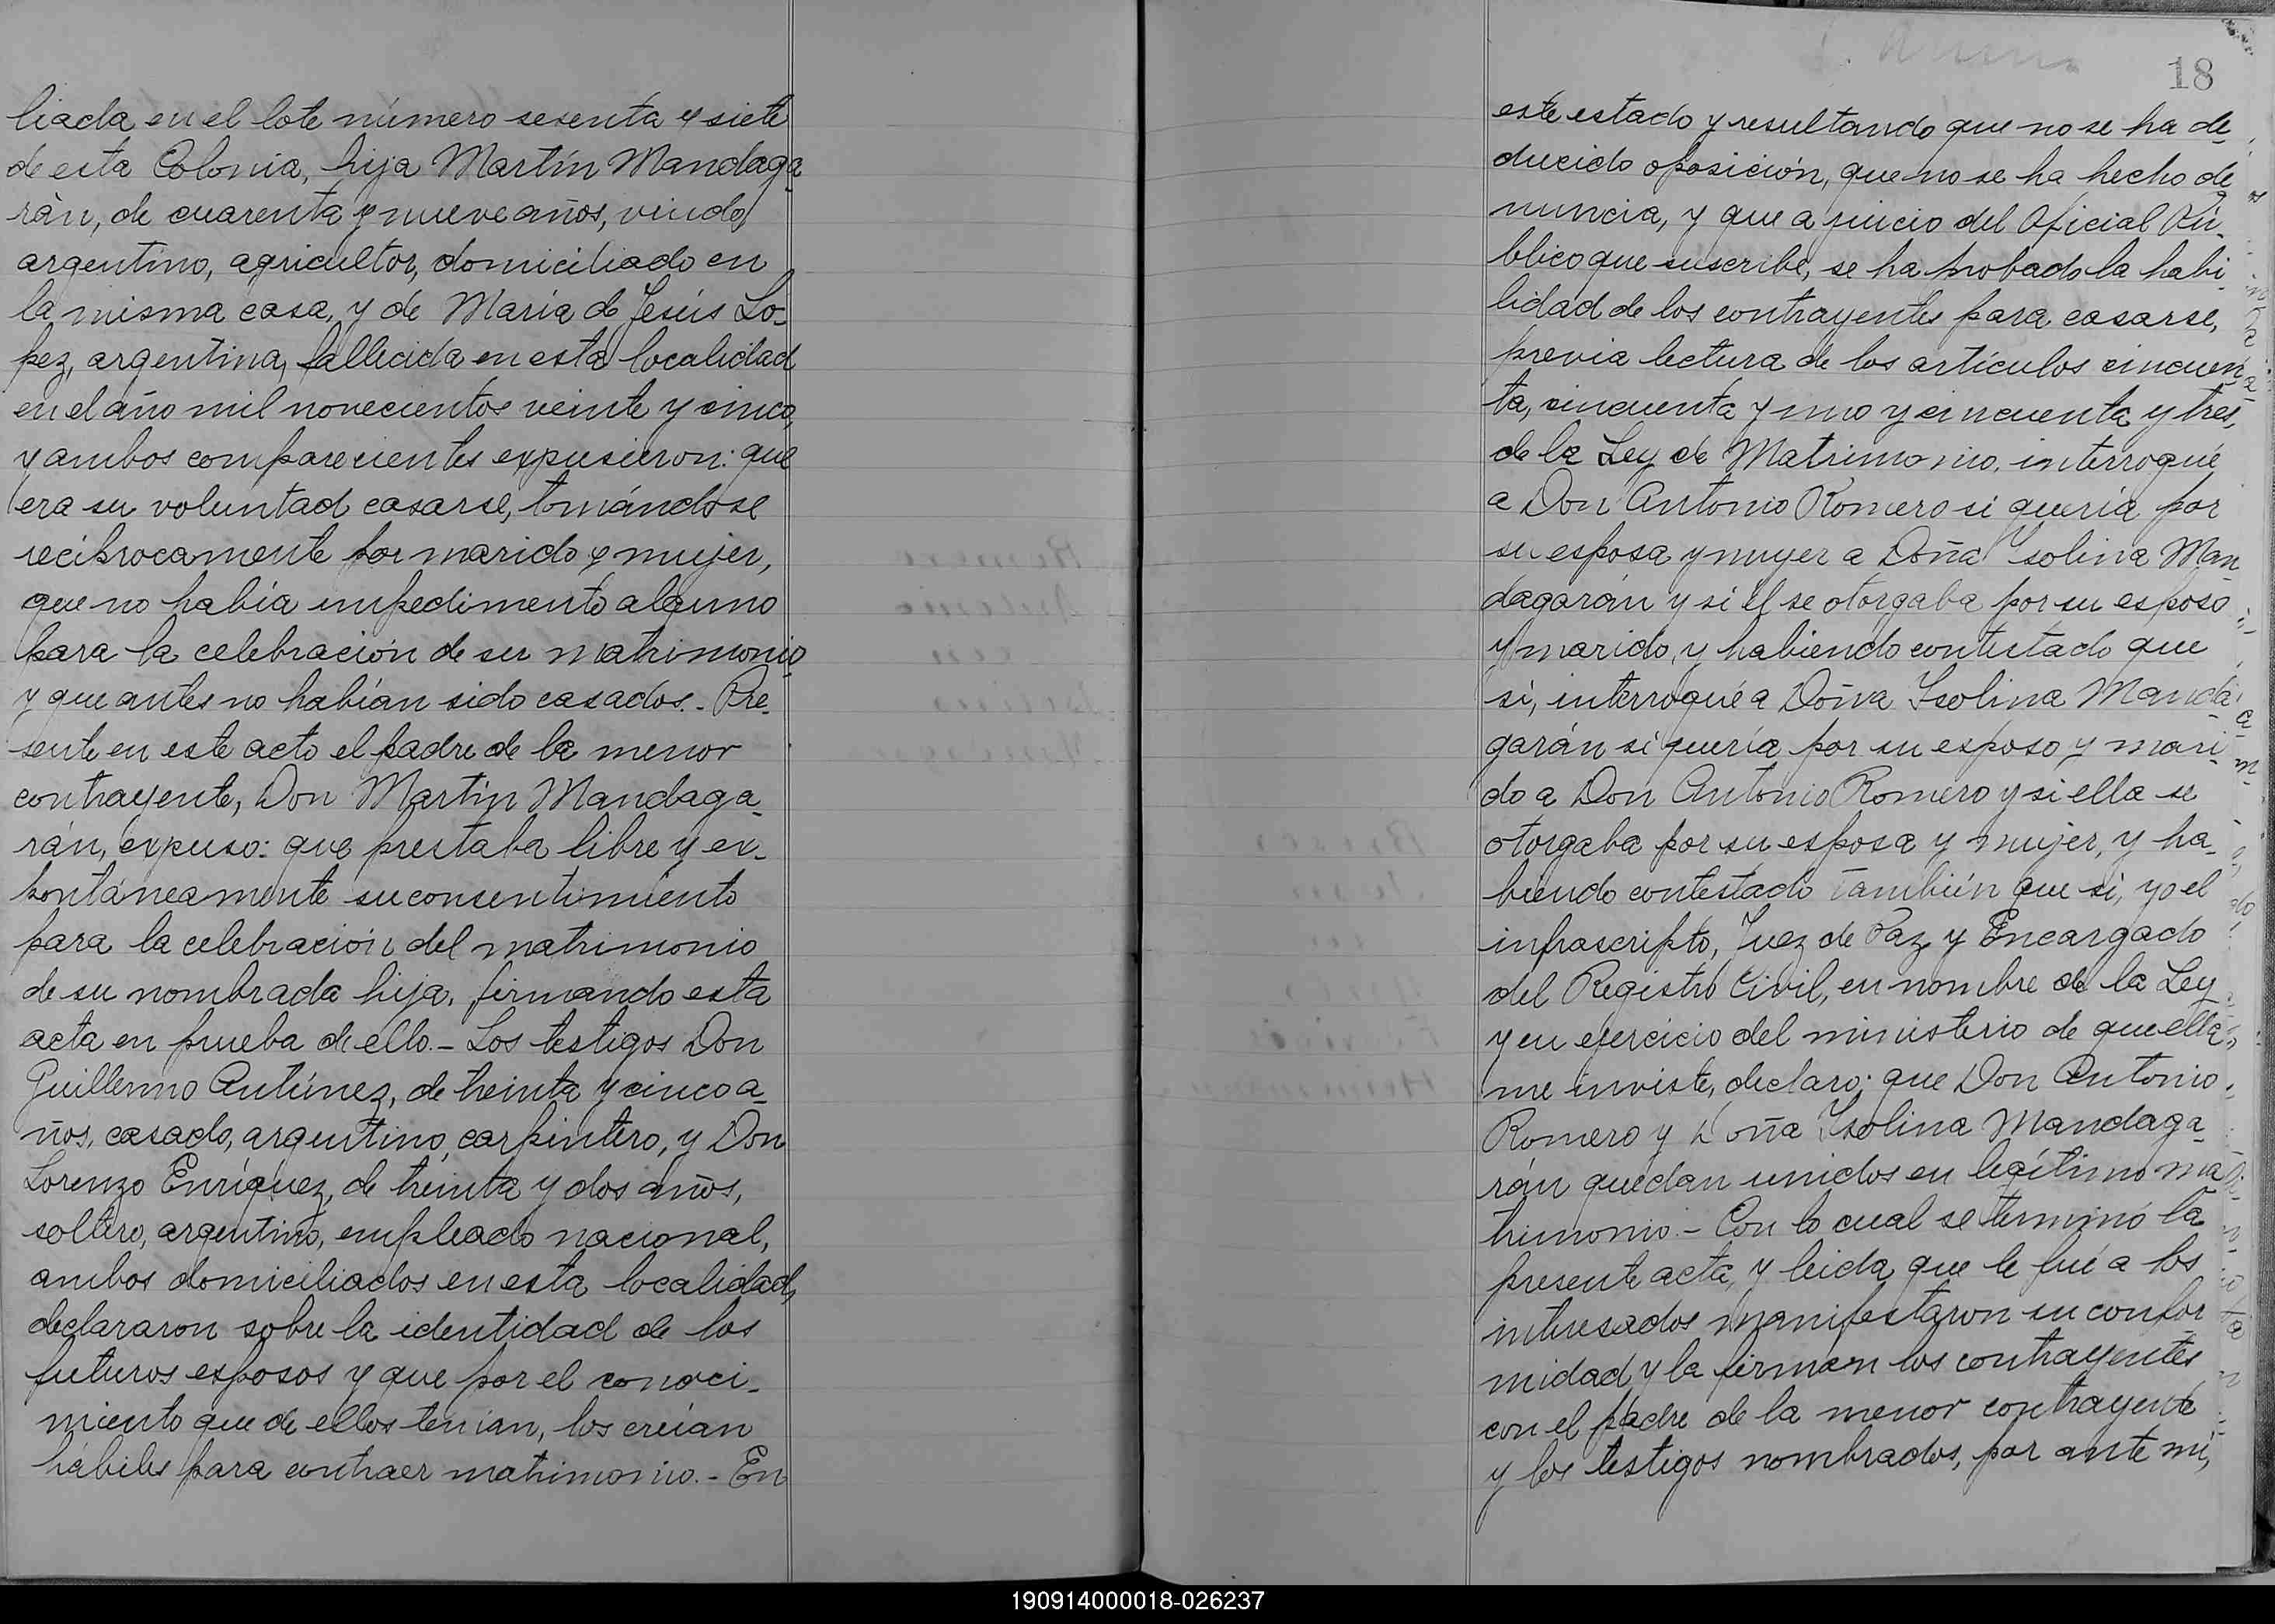 liada en el lote número sesenta y siete
de esta Colonia, hija Martín Mandaga-
rán, de cuarenta y nueve años, viudo,
argentino, agricultor, domiciliado en
la misma casa, y de María de Jesús Lo-
pez, argentina, fallecida en esta localidad
en el año mil novecientos veinte y cinco,
y ambos comparecientes expusieron: que
era su voluntad casarse, tomándose
recíprocamente por marido y mujer,
que no había impedimento alguno
para la celebración de su matrimonio
y que antes no habían sido casados.- Pre-
sente en este acto el padre de la menor
contrayente, Don Martín Mandaga-
rán, expuso: que prestaba libre y ex-
pontáneamente su consentimiento
para la celebración del matrimonio
de su nombrada hija, firmando esta
acta en prueba de ello.- Los testigos Don
Guillermo Antúnez, de treinta y cinco a-
ños, casado, argentino, carpintero, y Don
Lorenzo Enríquez, de treinta y dos años,
soltero, argentino, empleado nacional,
ambos domiciliados en esta localidad,
declararon sobre la identidad de los
futuros esposos y que por el conoci-
miento que de ellos tenían, los creían
hábiles para contraer matrimonio.- En
18
este estado y resultando que no se ha de-
ducido oposición, que no se ha hecho de-
nuncia, y que a juicio del Oficial Pú-
blico que suscribe, se ha probado la habi-
lidad de los contrayentes para casarse,
previa lectura de los artículos cincuen-
ta, cincuenta y uno y cincuenta y tres,
de la Ley de Matrimonio, interrogué
a Don Antonio Romero si quería por
su esposa y mujer a Doña Isolina Man-
dagarán y si él se otorgaba por su esposo
y marido, y habiendo contestado que
sí, interrogué a Doña Isolina Manda-
garán si quería por su esposo y mari-
do a Don Antonio Romero y si ella se
otorgaba por su esposa y mujer, y ha-
biendo contestado también que sí, yo el
infrascripto, Juez de Paz y Encargado
del Registro Civil, en nombre de la Ley
y en ejercicio del ministerio de que ella
me inviste, declaro: que Don Antonio
Romero y Doña Isolina Mandaga-
rán quedan unidos en legítimo ma-
trimonio.- Con lo cual se terminó la
presente acta, y leida que le fué a los
interesados manifestaron su confor-
midad y la firman los contrayentes
con el padre de la menor contrayente
y los testigos nombrados, por ante mí,
190914000018-026237